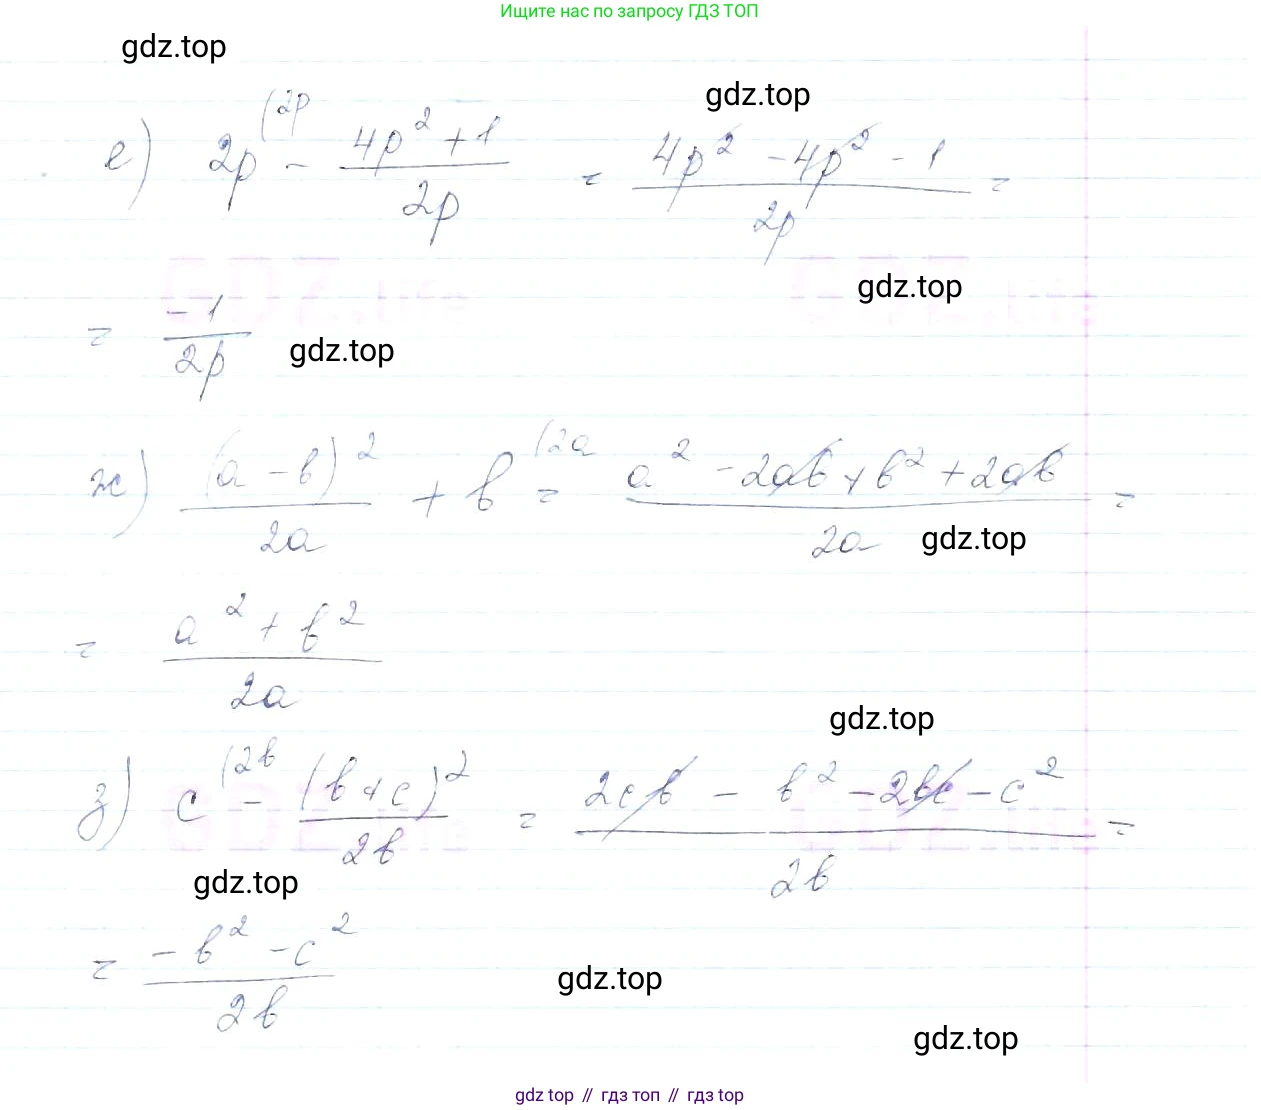 Ищите нас по запросу ГДЗ ТОП
gdz.top
gdz.top
е) 2p (2p - (4p² + 1)/(2p) = (4p² - 4p² - 1)/(2p) =
gdz.top
= -1/(2p)
gdz.top
ж) (a - b)²/(2a) + b (2a = (a² - 2ab + b² + 2ab)/(2a) =
gdz.top
= (a² + b²)/(2a)
gdz.top
з) c (2b - (b + c)²/(2b) = (2cb - b² - 2bc - c²)/(2b) =
gdz.top
= (-b² - c²)/(2b)
gdz.top
gdz.top
gdz top // гдз топ // гдз top